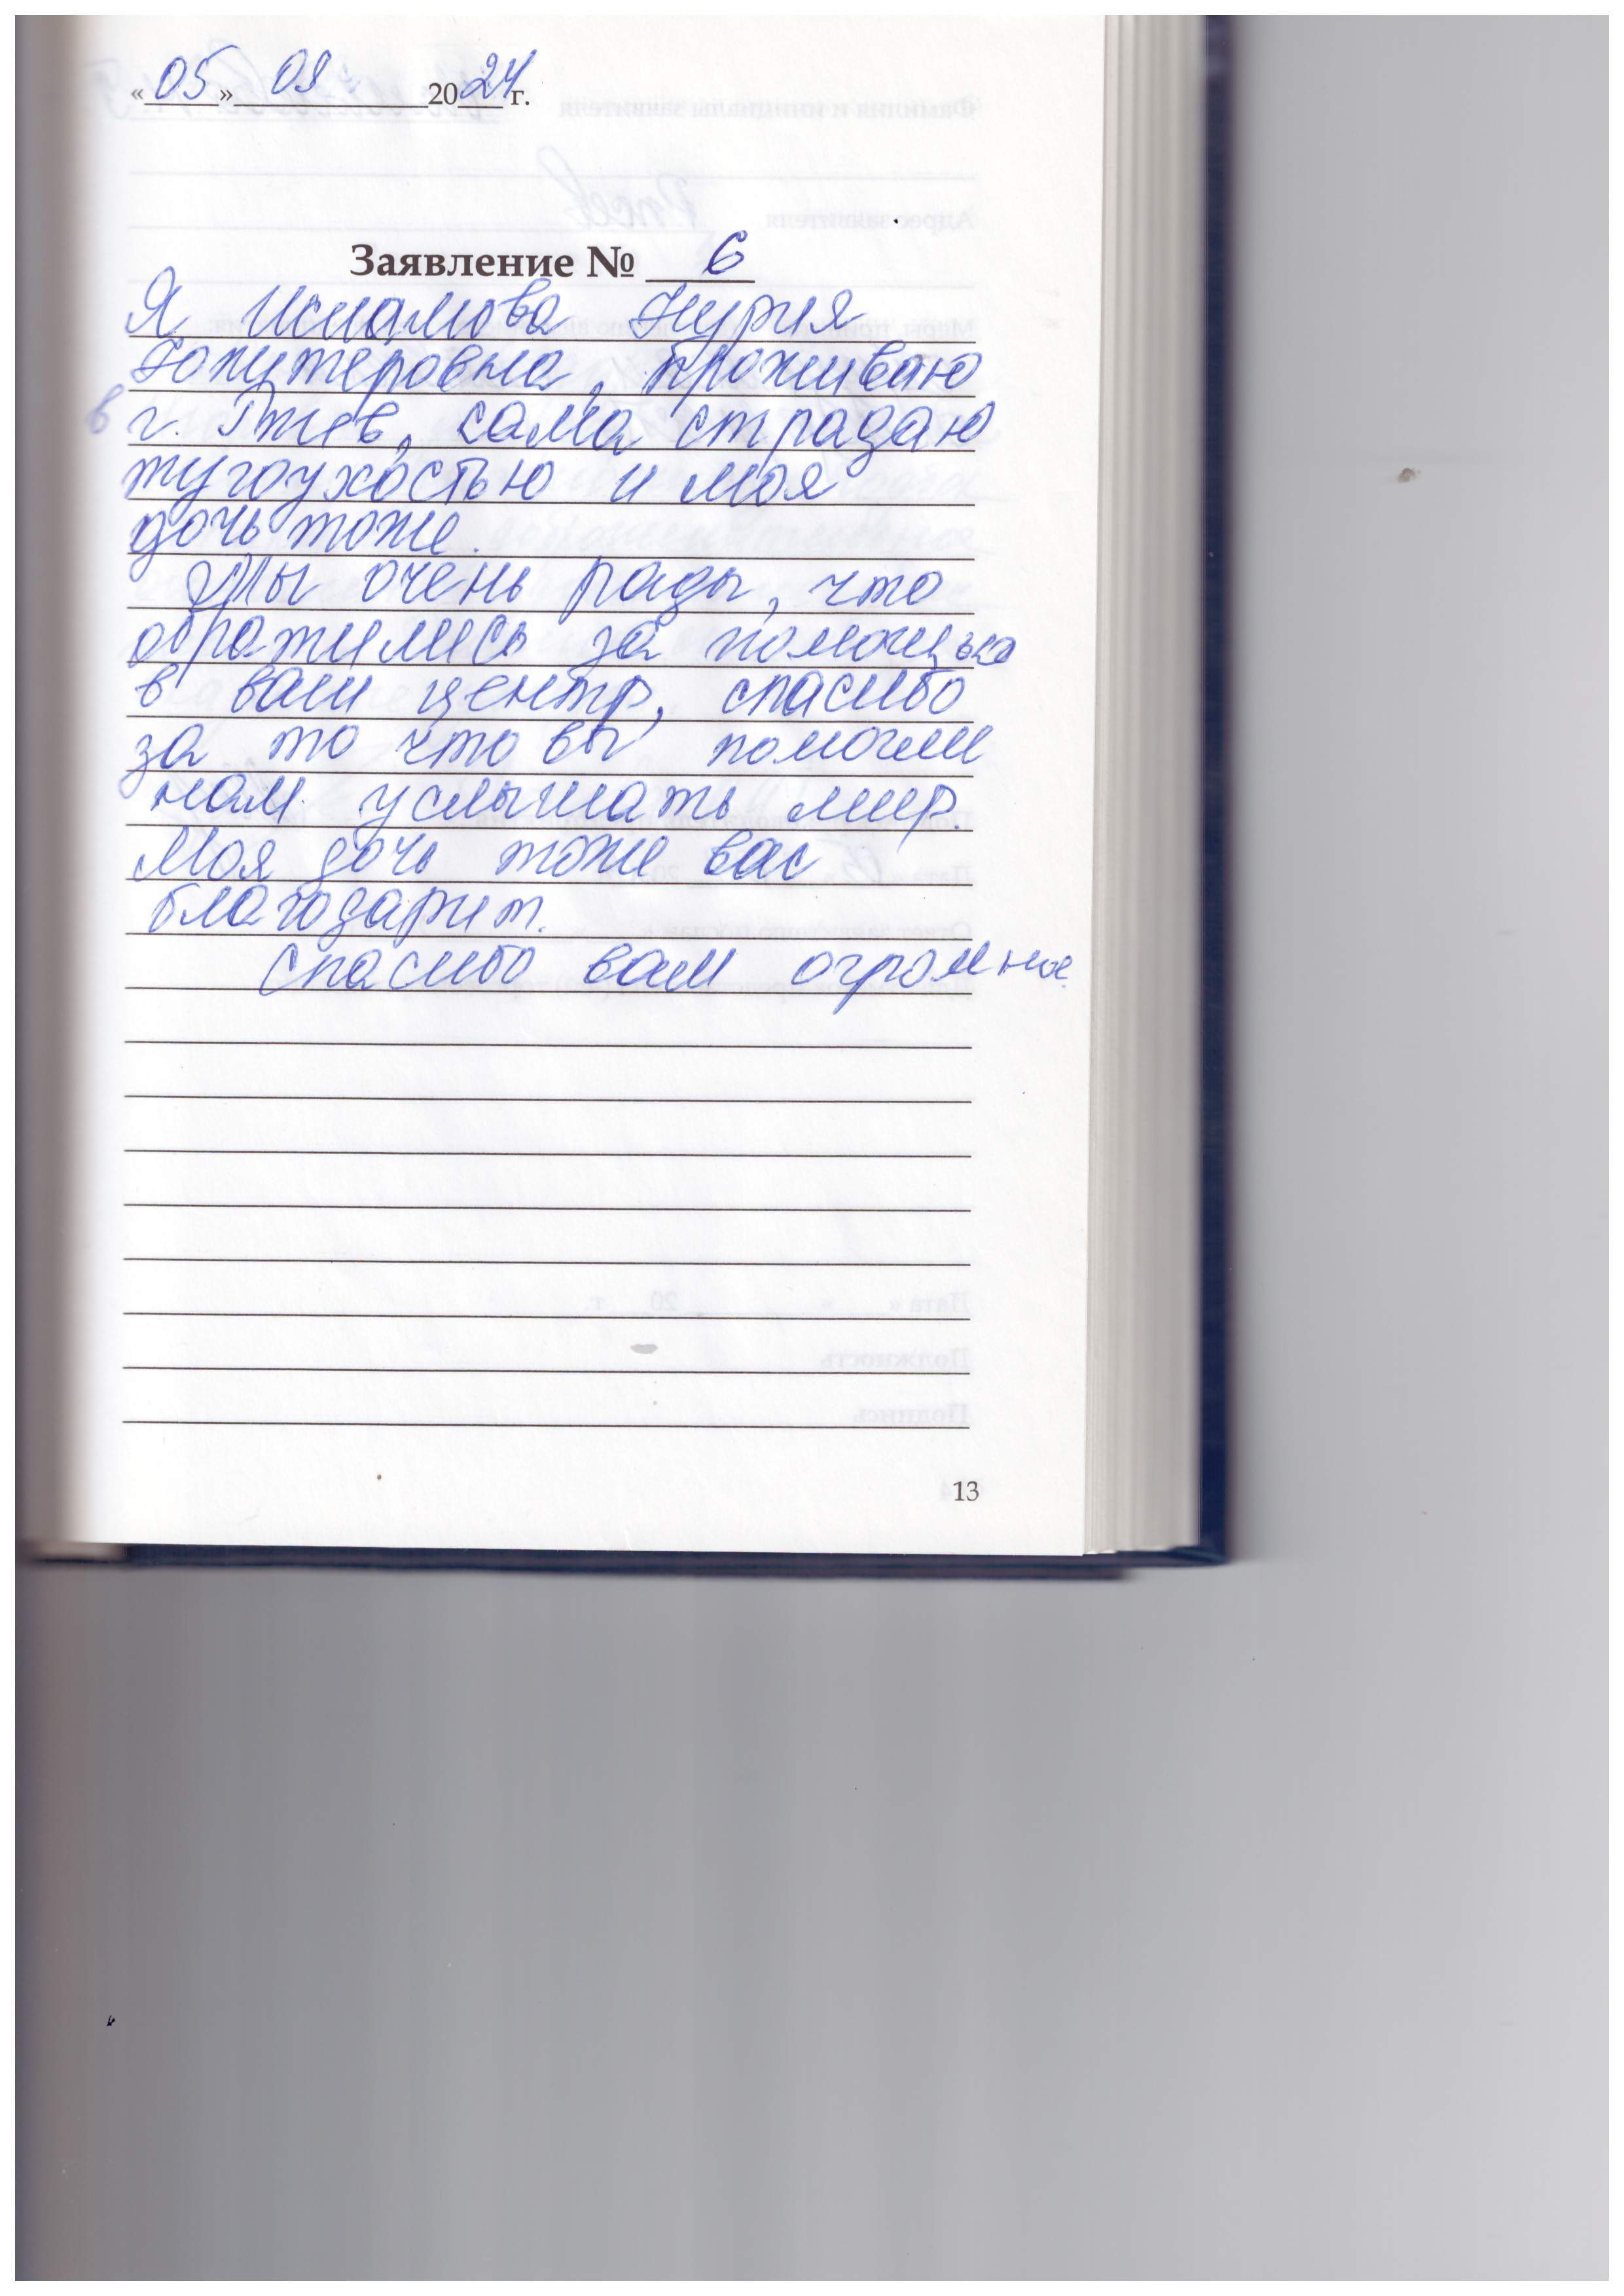 «05» 09 2024 г.
Заявление № 6
Я Исламова Нурия
проживаю
в г. Ржев, сама страдаю
тугоухостью и моя
дочь тоже.
Мы очень рады, что
обратились за помощью
в ваш центр, спасибо
за то что вы помогли
нам услышать мир.
Моя дочь тоже вас
благодарит.
Спасибо вам огромное.
13